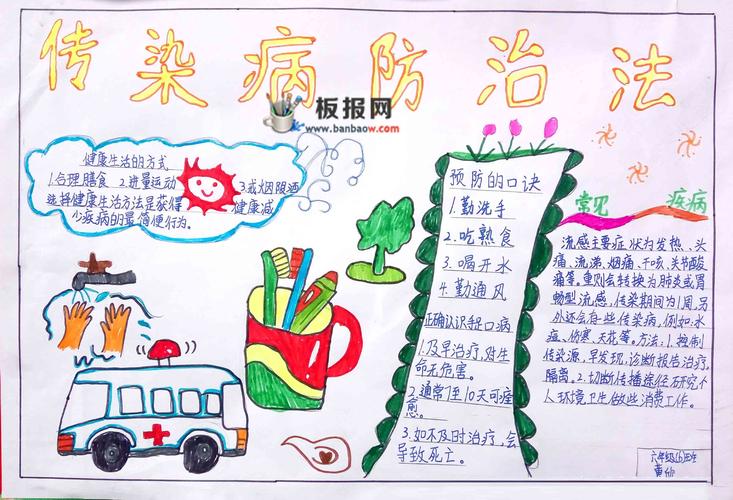 传染病防治法
板报网
www.banbaow.com
健康生活的方式
1.合理膳食 2.进量运动 3.戒烟限酒
选择健康生活方法是获得健康减
少疾病的最简便行为。
预防的口诀
1.勤洗手
2.吃熟食
3.喝开水
4.勤通风
正确认识轻口病
1.及早治疗,对生
命无危害。
2.通常7至10天可痊
愈。
3.如不及时治疗,会
导致死亡。
常见 疾病
流感主要症状为发热、头
痛、流涕、烟痛、干咳、关节酸
痛等。重则会转换为肺炎或胃
畅型流感,传染期间为1周,另
外还会存些传染病,例如:水
痘、伤寒、天花等。方法:1.控制
传染源、早发现,诊断报告治疗,
隔离。2.切断传播途径研究个
人环境卫生做些消费工作。
六年级(6)班
黄